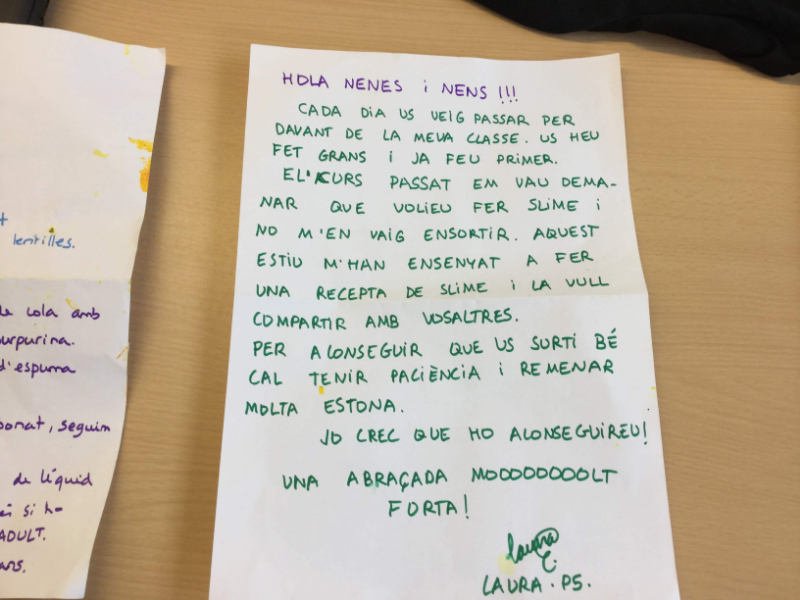 lentilles.
de cola amb
purpurina.
d'espuma
bonat, seguim
de líquid
si h-
ADULT.
HOLA NENES i NENS!!!
CADA DIA US VEIG PASSAR PER
DAVANT DE LA MEVA CLASSE. US HEU
FET GRANS i JA FEU PRIMER.
EL KURS PASSAT EM VAU DEMA-
NAR QUE VOLIEU FER SLIME i
NO M'EN VAIG ENSORTIR. AQUEST
ESTIU M'HAN ENSENYAT A FER
UNA RECEPTA DE SLIME i LA VULL
COMPARTIR AMB VOSALTRES.
PER ACONSEGUIR QUE US SURTI BÉ
CAL TENIR PACIÈNCIA i REMENAR
MOLTA ESTONA.
JO CREC QUE HO ACONSEGUIREU!
UNA ABRAÇADA MOOOOOOOOLT
FORTA!
Laura C.
LAURA. P5.